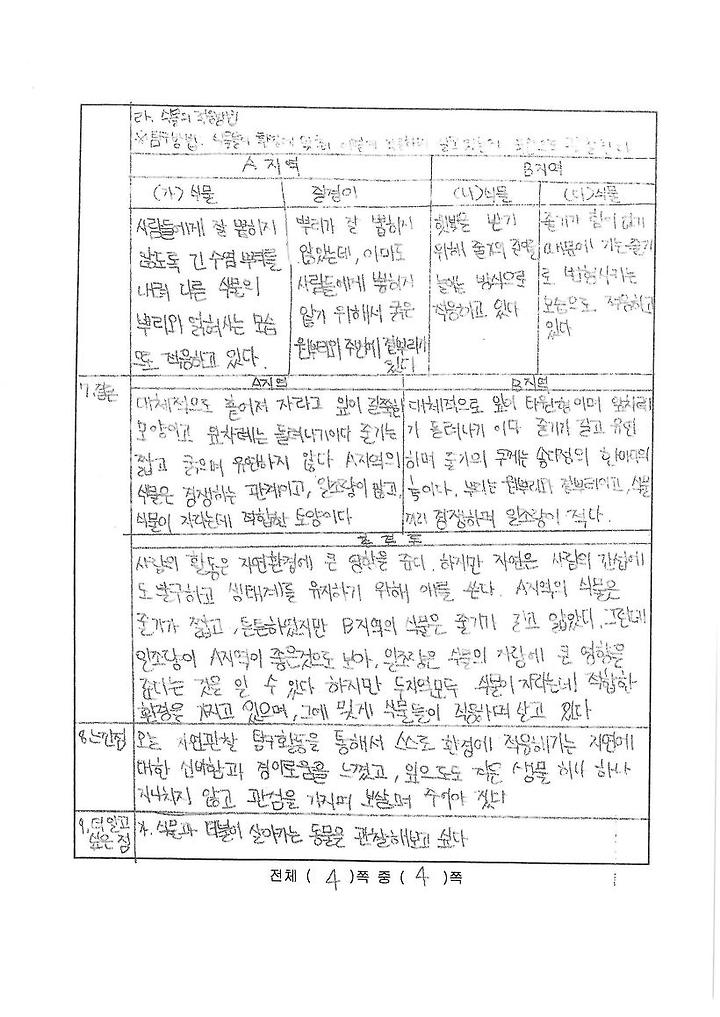 라. 식물의 적응방법
※탐구방법. 식물들이 환경에
A 지역
B지역
(가) 식물
질경이
(나)식물
(다)식물
사람들에게 잘 뽑히지
않도록 긴 수염뿌리를
내려 다른 식물의
뿌리와 얽혀사는 모습
으로 적응하고 있다.
뿌리가 잘 뽑히지
않았는데, 이마도
사람들에게 뽑히지
않기 위해서 굵은
원뿌리와 주변에 곁뿌리가
있다
햇빛을 받기
위해 줄기의 길이를
늘이는 방식으로
적응하고 있다
줄기가 힘이 없기
때문에 기는 줄기
로 변형시키는
모습으로 적응하고
있다
7.결론
A지역
B지역
대체적으로 흩어져 자라고 잎이 길쭉한
모양이고 잎차례는 돌려나기이다 줄기는
짧고 굵으며 유연하지 않다 A지역의
식물은 경쟁하는 관계이고, 일조량이 많고,
식물이 자라는데 적합한 토양이다
대체적으로 잎이 타원형이며 잎차례
가 돌려나기 이다 줄기가 길고 유연
하며 줄기의 두께는
뿌리는 원뿌리와 곁뿌리이고, 식물
끼리 경쟁하며 일조량이 적다.
사람의 활동은 자연환경에 큰 영향을 준다. 하지만 자연은 사람의 간섭에
도 불구하고 생태계를 유지하기 위해 애를 쓴다. A지역의 식물은
줄기가 짧고, 튼튼하였지만 B지역의 식물은 줄기가 길고 얇았다. 그런데
일조량이 A지역이 좋은것으로 보아, 일조량은 식물의 자람에 큰 영향을
준다는 것을 알 수 있다 하지만 두지역모두 식물이 자라는데 적합한
환경을 가지고 있으며, 그에 맞게 식물들이 적응하며 살고 있다
8.느낀점
오늘 자연관찰 탐구활동을 통해서 스스로 환경에 적응해가는 자연에
대한 신비함과 경이로움을 느꼈고, 앞으로도 작은 생물 하나 하나
지나치지 않고 관심을 가지며 보살펴 주어야 겠다
9.더알고
싶은 점
식물과 더불어 살아가는 동물을 관찰해보고 싶다
전체 ( 4 )쪽 중 ( 4 )쪽